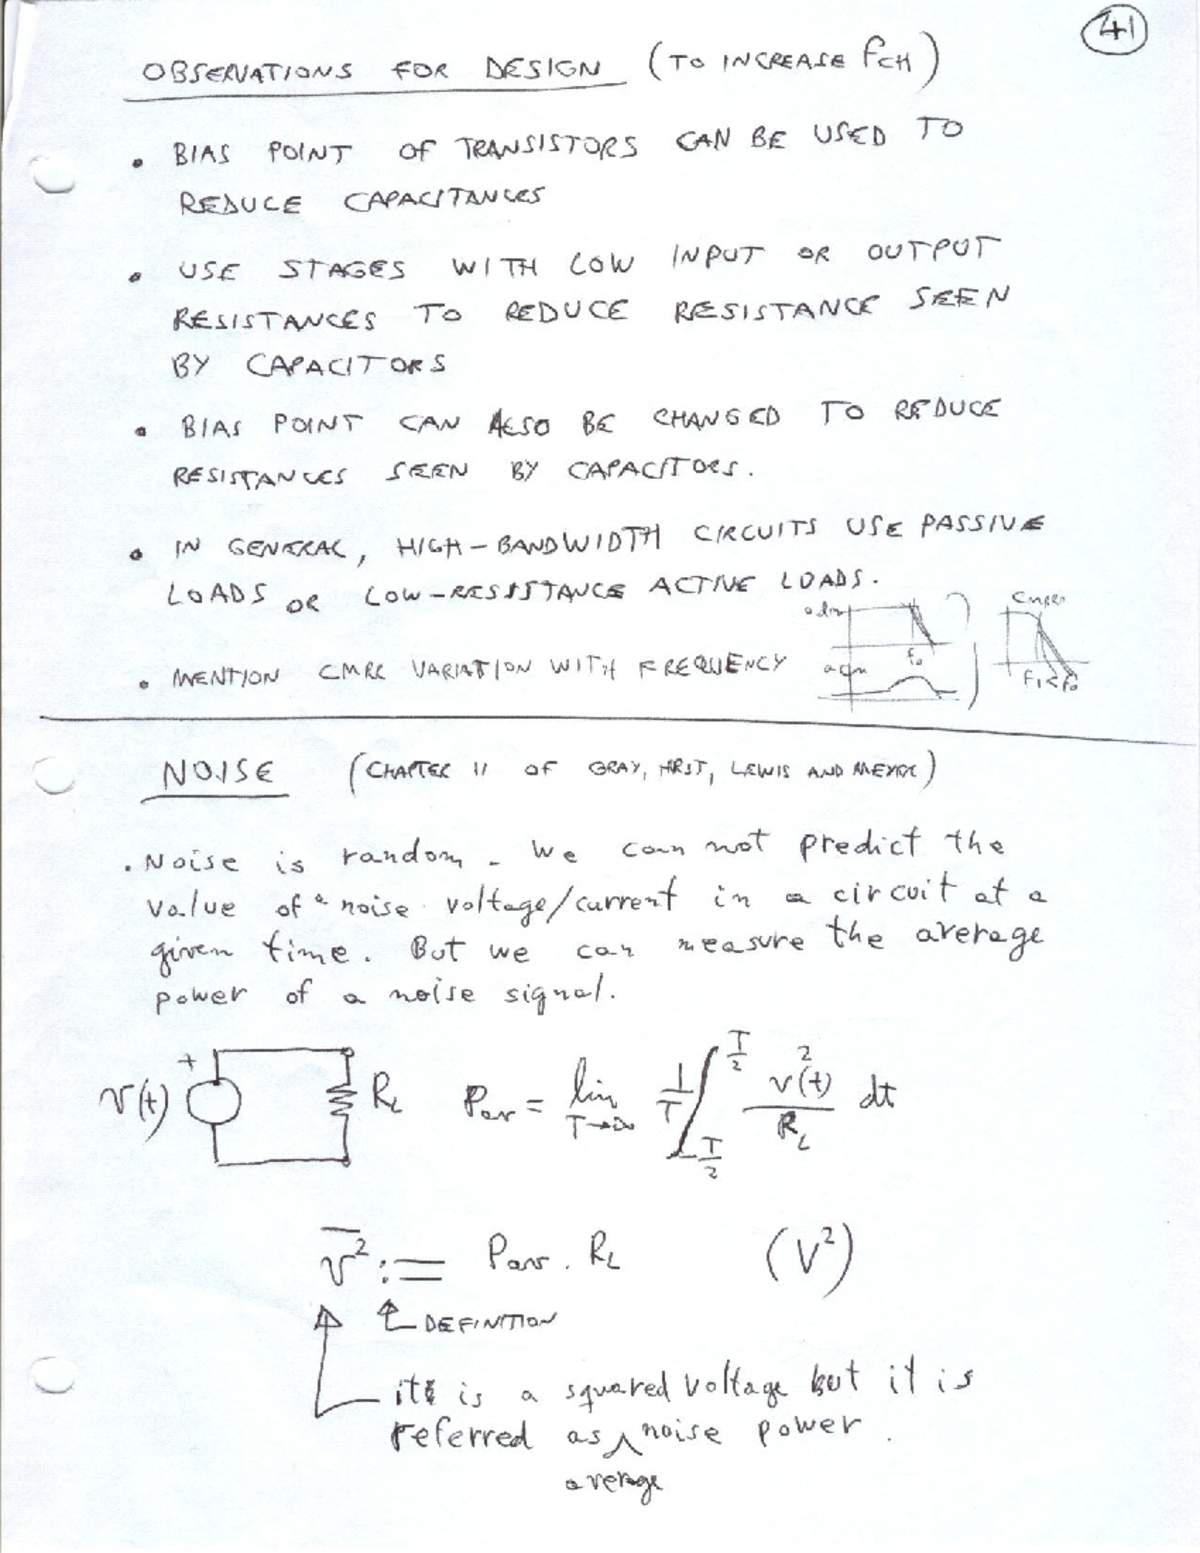 41
OBSERVATIONS FOR DESIGN (TO INCREASE fCH)
• BIAS POINT OF TRANSISTORS CAN BE USED TO
REDUCE CAPACITANCES
• USE STAGES WITH LOW INPUT OR OUTPUT
RESISTANCES TO REDUCE RESISTANCE SEEN
BY CAPACITORS
• BIAS POINT CAN ALSO BE CHANGED TO REDUCE
RESISTANCES SEEN BY CAPACITORS.
• IN GENERAL, HIGH-BANDWIDTH CIRCUITS USE PASSIVE
LOADS OR LOW-RESISTANCE ACTIVE LOADS.
• MENTION CMRR VARIATION WITH FREQUENCY
adm
fo
acm
CMRR
f1<fo
NOISE (CHAPTER 11 OF GRAY, HRST, LEWIS AND MEYER)
• Noise is random. We can not predict the
value of a noise voltage/current in a circuit at a
given time. But we can measure the average
power of a noise signal.
v(t) + RL Pav = lim T→∞ 1/T ∫ -T/2 T/2 v²(t)/RL dt
v̅² := Pav . RL (V²)
DEFINITION
it is a squared voltage but it is
referred as ^ noise power.
average